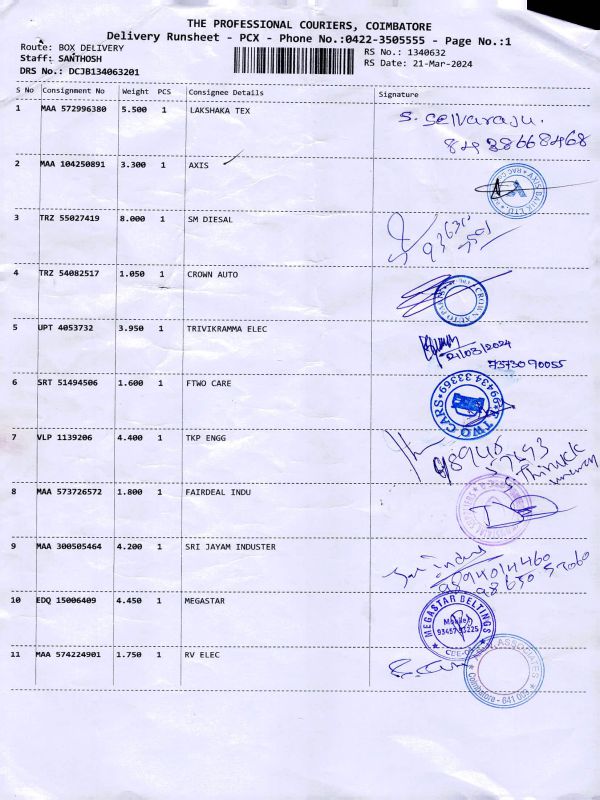 THE PROFESSIONAL COURIERS, COIMBATORE
Delivery Runsheet - PCX - Phone No.:0422-3505555 - Page No.:1
Route: BOX DELIVERY
Staff: SANTHOSH
DRS No.: DCJB134063201
RS No.: 1340632
RS Date: 21-Mar-2024
S No Consignment No Weight PCS Consignee Details Signature
1 MAA 572996380 5.500 1 LAKSHAKA TEX
S. Selvaraju.
2 MAA 104250891 3.300 1 AXIS
3 TRZ 55027419 8.000 1 SM DIESAL
4 TRZ 54082517 1.050 1 CROWN AUTO
5 UPT 4053732 3.950 1 TRIVIKRAMMA ELEC
21/03/2024
73730 90055
6 SRT 51494506 1.600 1 FTWO CARE
F TWO CARS
99434 33369
7 VLP 1139206 4.400 1 TKP ENGG
8 MAA 573726572 1.800 1 FAIRDEAL INDU
9 MAA 300505464 4.200 1 SRI JAYAM INDUSTER
9894014460
10 EDQ 15006409 4.450 1 MEGASTAR
MEGASTAR BELTINGS
11 MAA 574224901 1.750 1 RV ELEC
ASSOCIATES
Coimbatore - 641 009